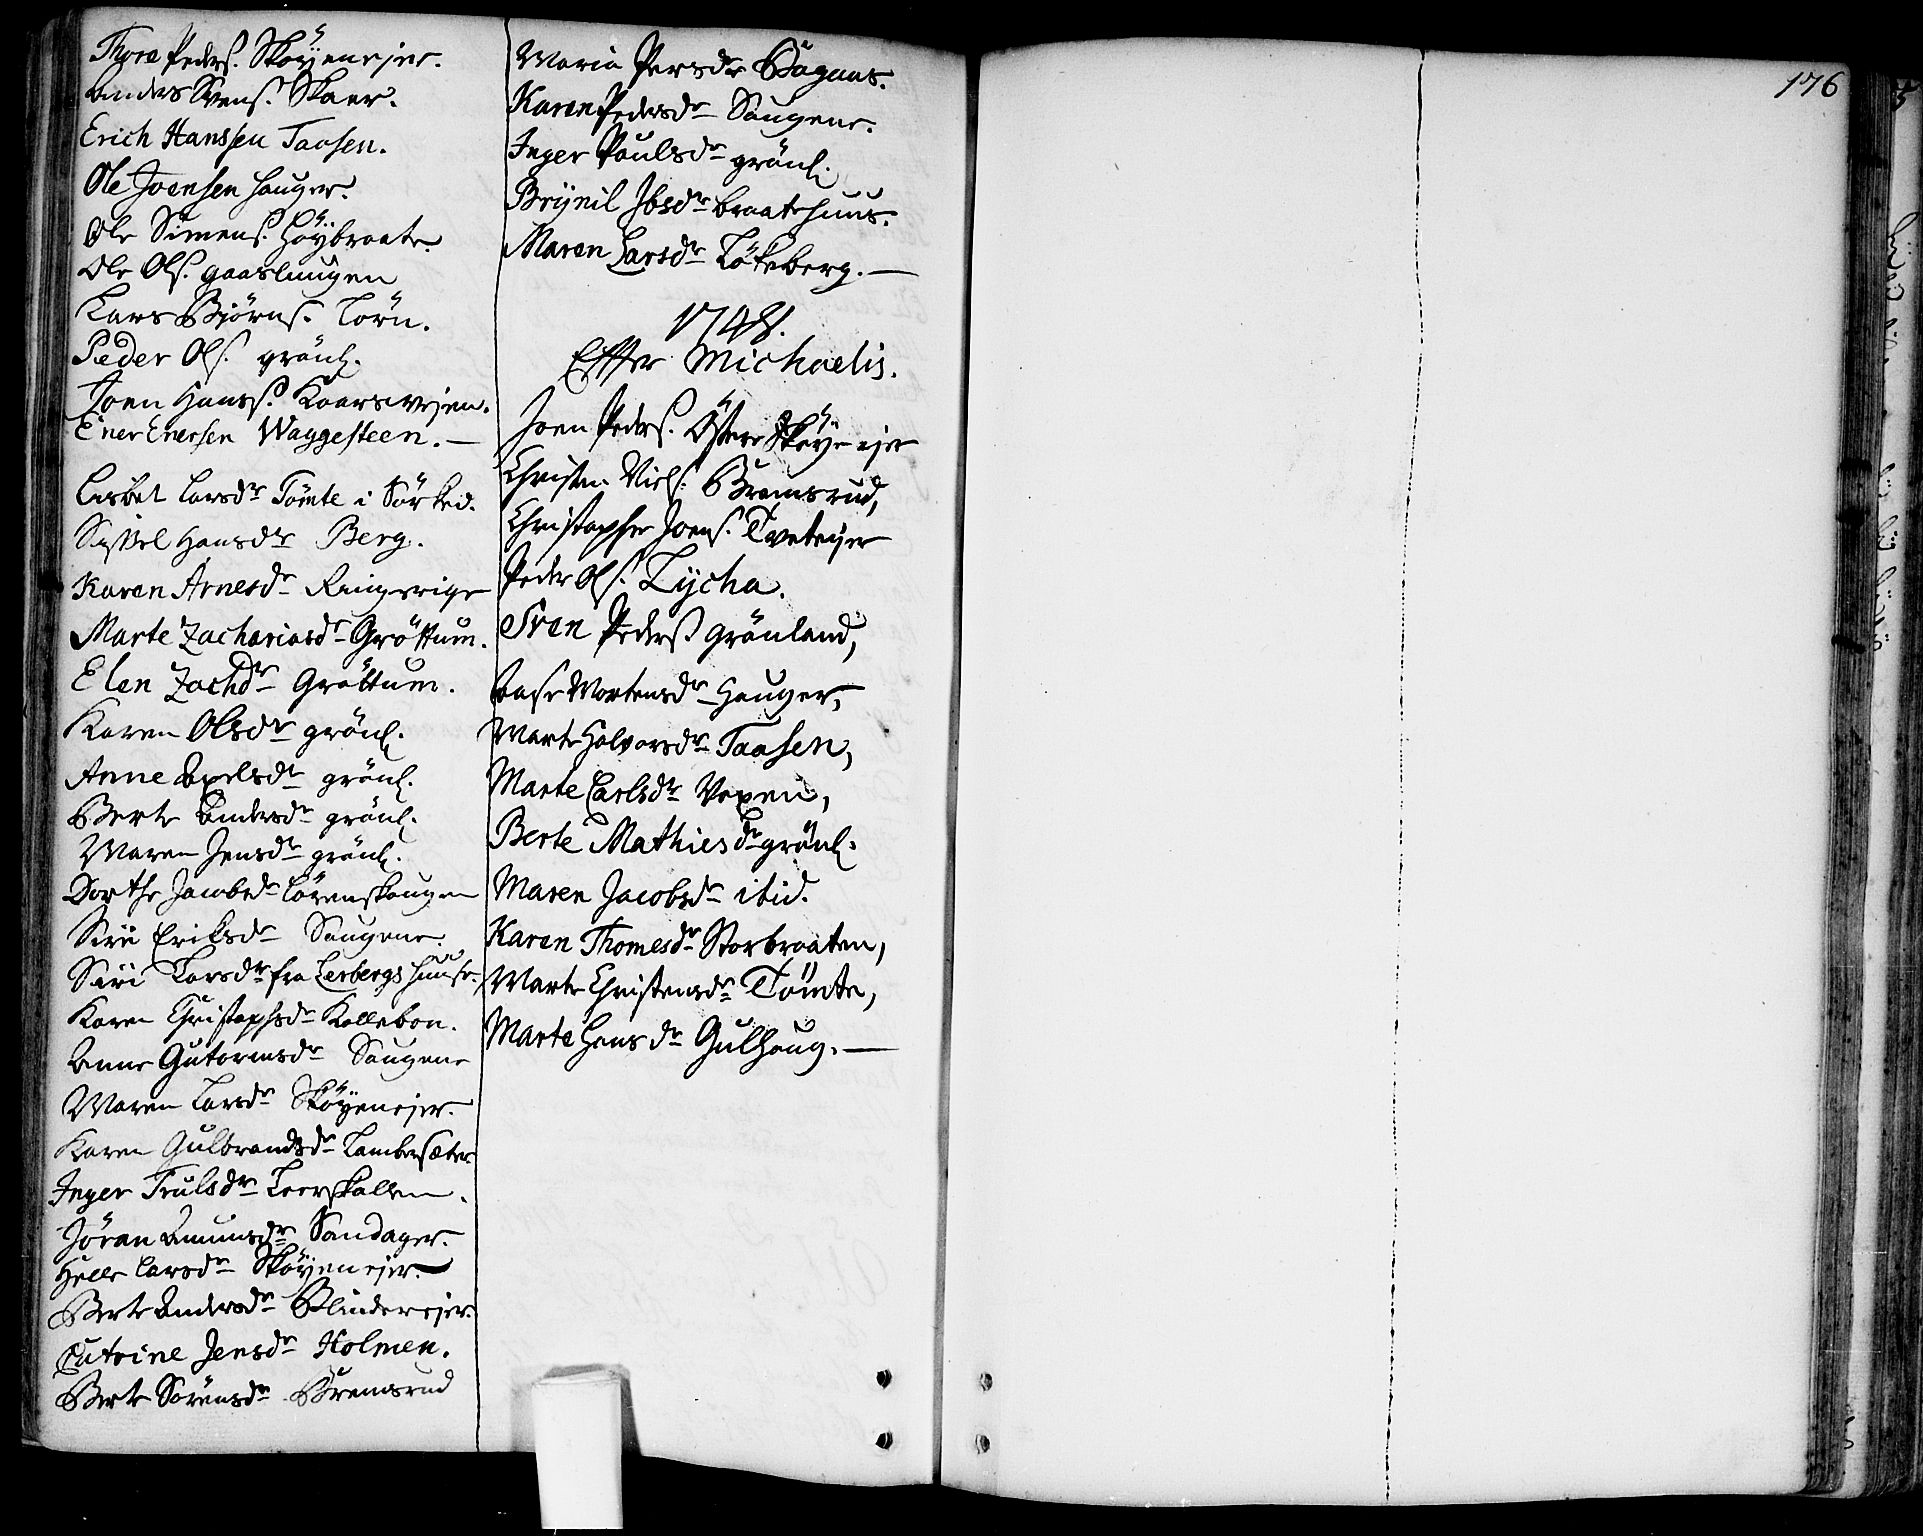 Thore Peders. Skøyenejer.
Anders Svens. Skaer.
Erich Hanssen Taasen.
Ole Joensen hauger.
Ole Simens. Høybraate
Ole Ols. gaaslungen
Lars Bjørns. Lørn.
Peder Ols. grönl.
Joen Hanss. Kaarsvejen.
Ener Enersen Waggesteen. —
Lisbet Larsdr Tömte i Sörked.
Sissel Hansdr Berg.
Karen Arnesdr Ringerige
Marte Zachariasdr Gröttum.
Elen Zachdr Gröttum.
Karen Olsdr grönl.
Anne Axelsdr grönl.
Berte Andersdr grönl.
Maren Jensdr grönl.
Dorthe Jacobsdr Lörenskougen
Siri Eriksdr Saugene.
Siri Larsdr fra Lerbergs huuse
Karen Christophsdr Kallebon.
Anne Gutormsdr Saugene
Maren Larsdr Sköyenejer.
Karen Gulbrandsdr Lambersæter
Inger Trulsdr Leerskallen.
Jöran Amundsdr Sandager.
Helle Larsdr Sköyenejer. —
Berte Andersdr Blinderejer.
Catrine Jensdr Holmen.
Berte Sörensdr Bremsrud
Maria Persdr Bagaas.
Karen Pedersdr Saugene.
Inger Paulsdr grönl.
Brynil Ibsdr braatehuus.
Maren Larsdr Lökeberg. —
1748.
Efter Michaelis.
Joen Peders. Östre Sköyenejer
Christen Niels. Bremsrud,
Christopher Joens. Tvetejer
Peder Ols. Lycha.
Sven Pederss grönland,
Aase Mortensdr Hauger,
Marte Halvorsdr Taasen,
Marte Carlsdr Vexen,
Berte Mathiesdr grönl.
Maren Jacobsdr ibid.
Karen Thomesdr Storbraaten,
Marte Christensdr Tömte,
Marte Hansdr Gulhaug. —
176
5